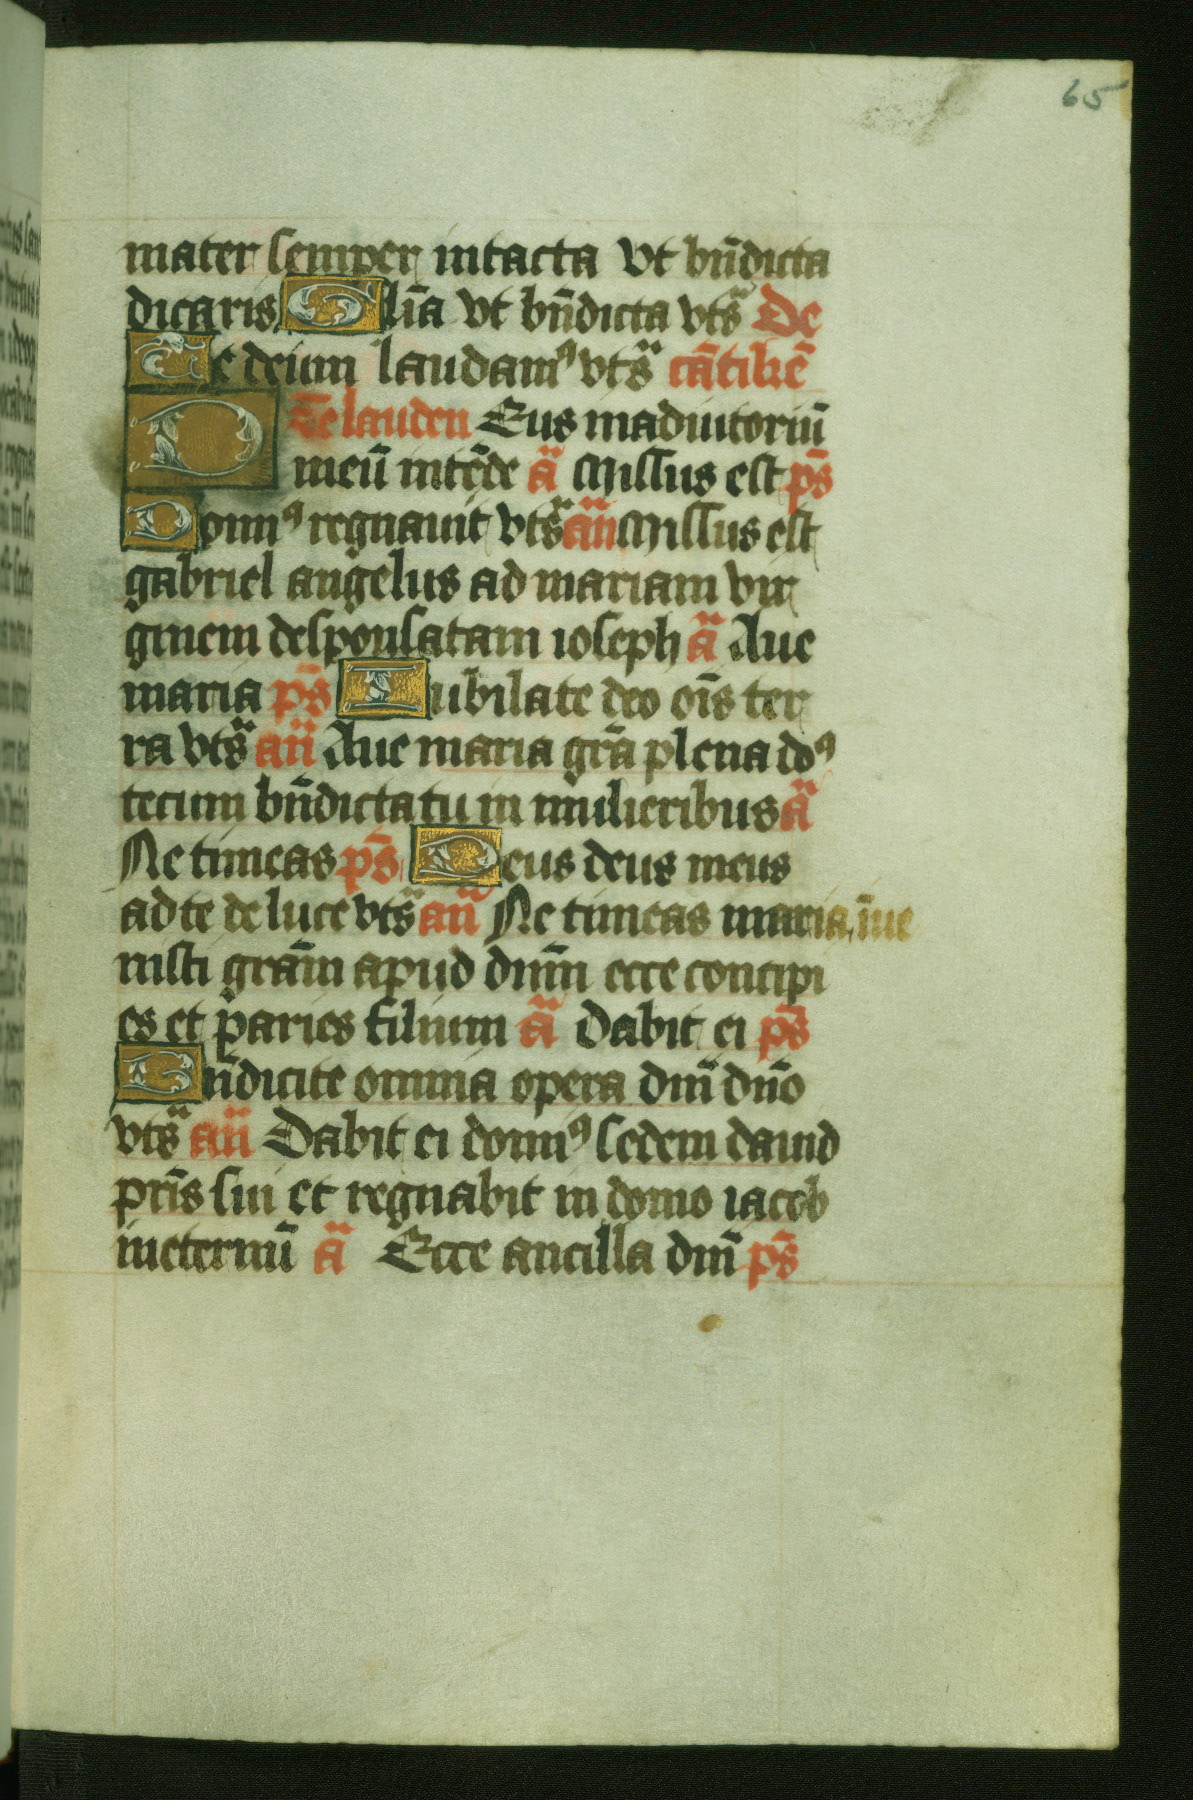 65
mater semper intacta vt bn̄dicta
dicaris Glīa vt bn̄dicta vts̄ De
Te deum laudamꝰ vts̄ cātikē
Te lauden Deus in adiutoriū
meū intēde ā Missus est ps̄
Domꝰ regnauit vts̄ an̄ Missus est
gabriel angelus ad mariam vir
ginem desponsatam ioseph ā Aue
maria ps̄ Iubilate deo oīs ter
ra vts̄ an̄ Aue maria gr̄a plena dōꝰ
tecum bn̄dicta tu in mulieribus ā
Ne timeas ps̄ Deus deus meus
ad te de luce vts̄ an̄ Ne timeas maria īue
nisti grām apud dūm ecce concipi
es et paries filium ā Dabit ei ps̄
Bn̄dicite omnia opera dnī dn̄o
vts̄ an̄ Dabit ei domꝰ sedem dauid
pr̄is sui et regnabit in domo iacob
ineternū ā Ecce ancilla dnī ps̄